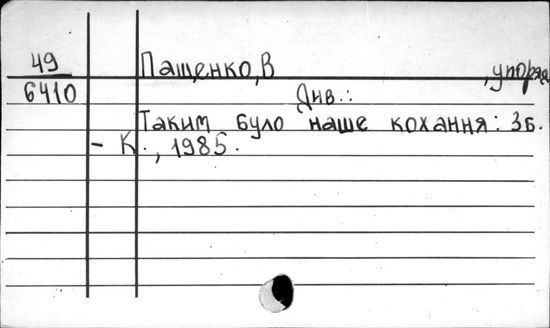 49 Пащенко, В , упоряд
6410 Див.:
Таким було наше кохання: Зб.
- К., 1985.